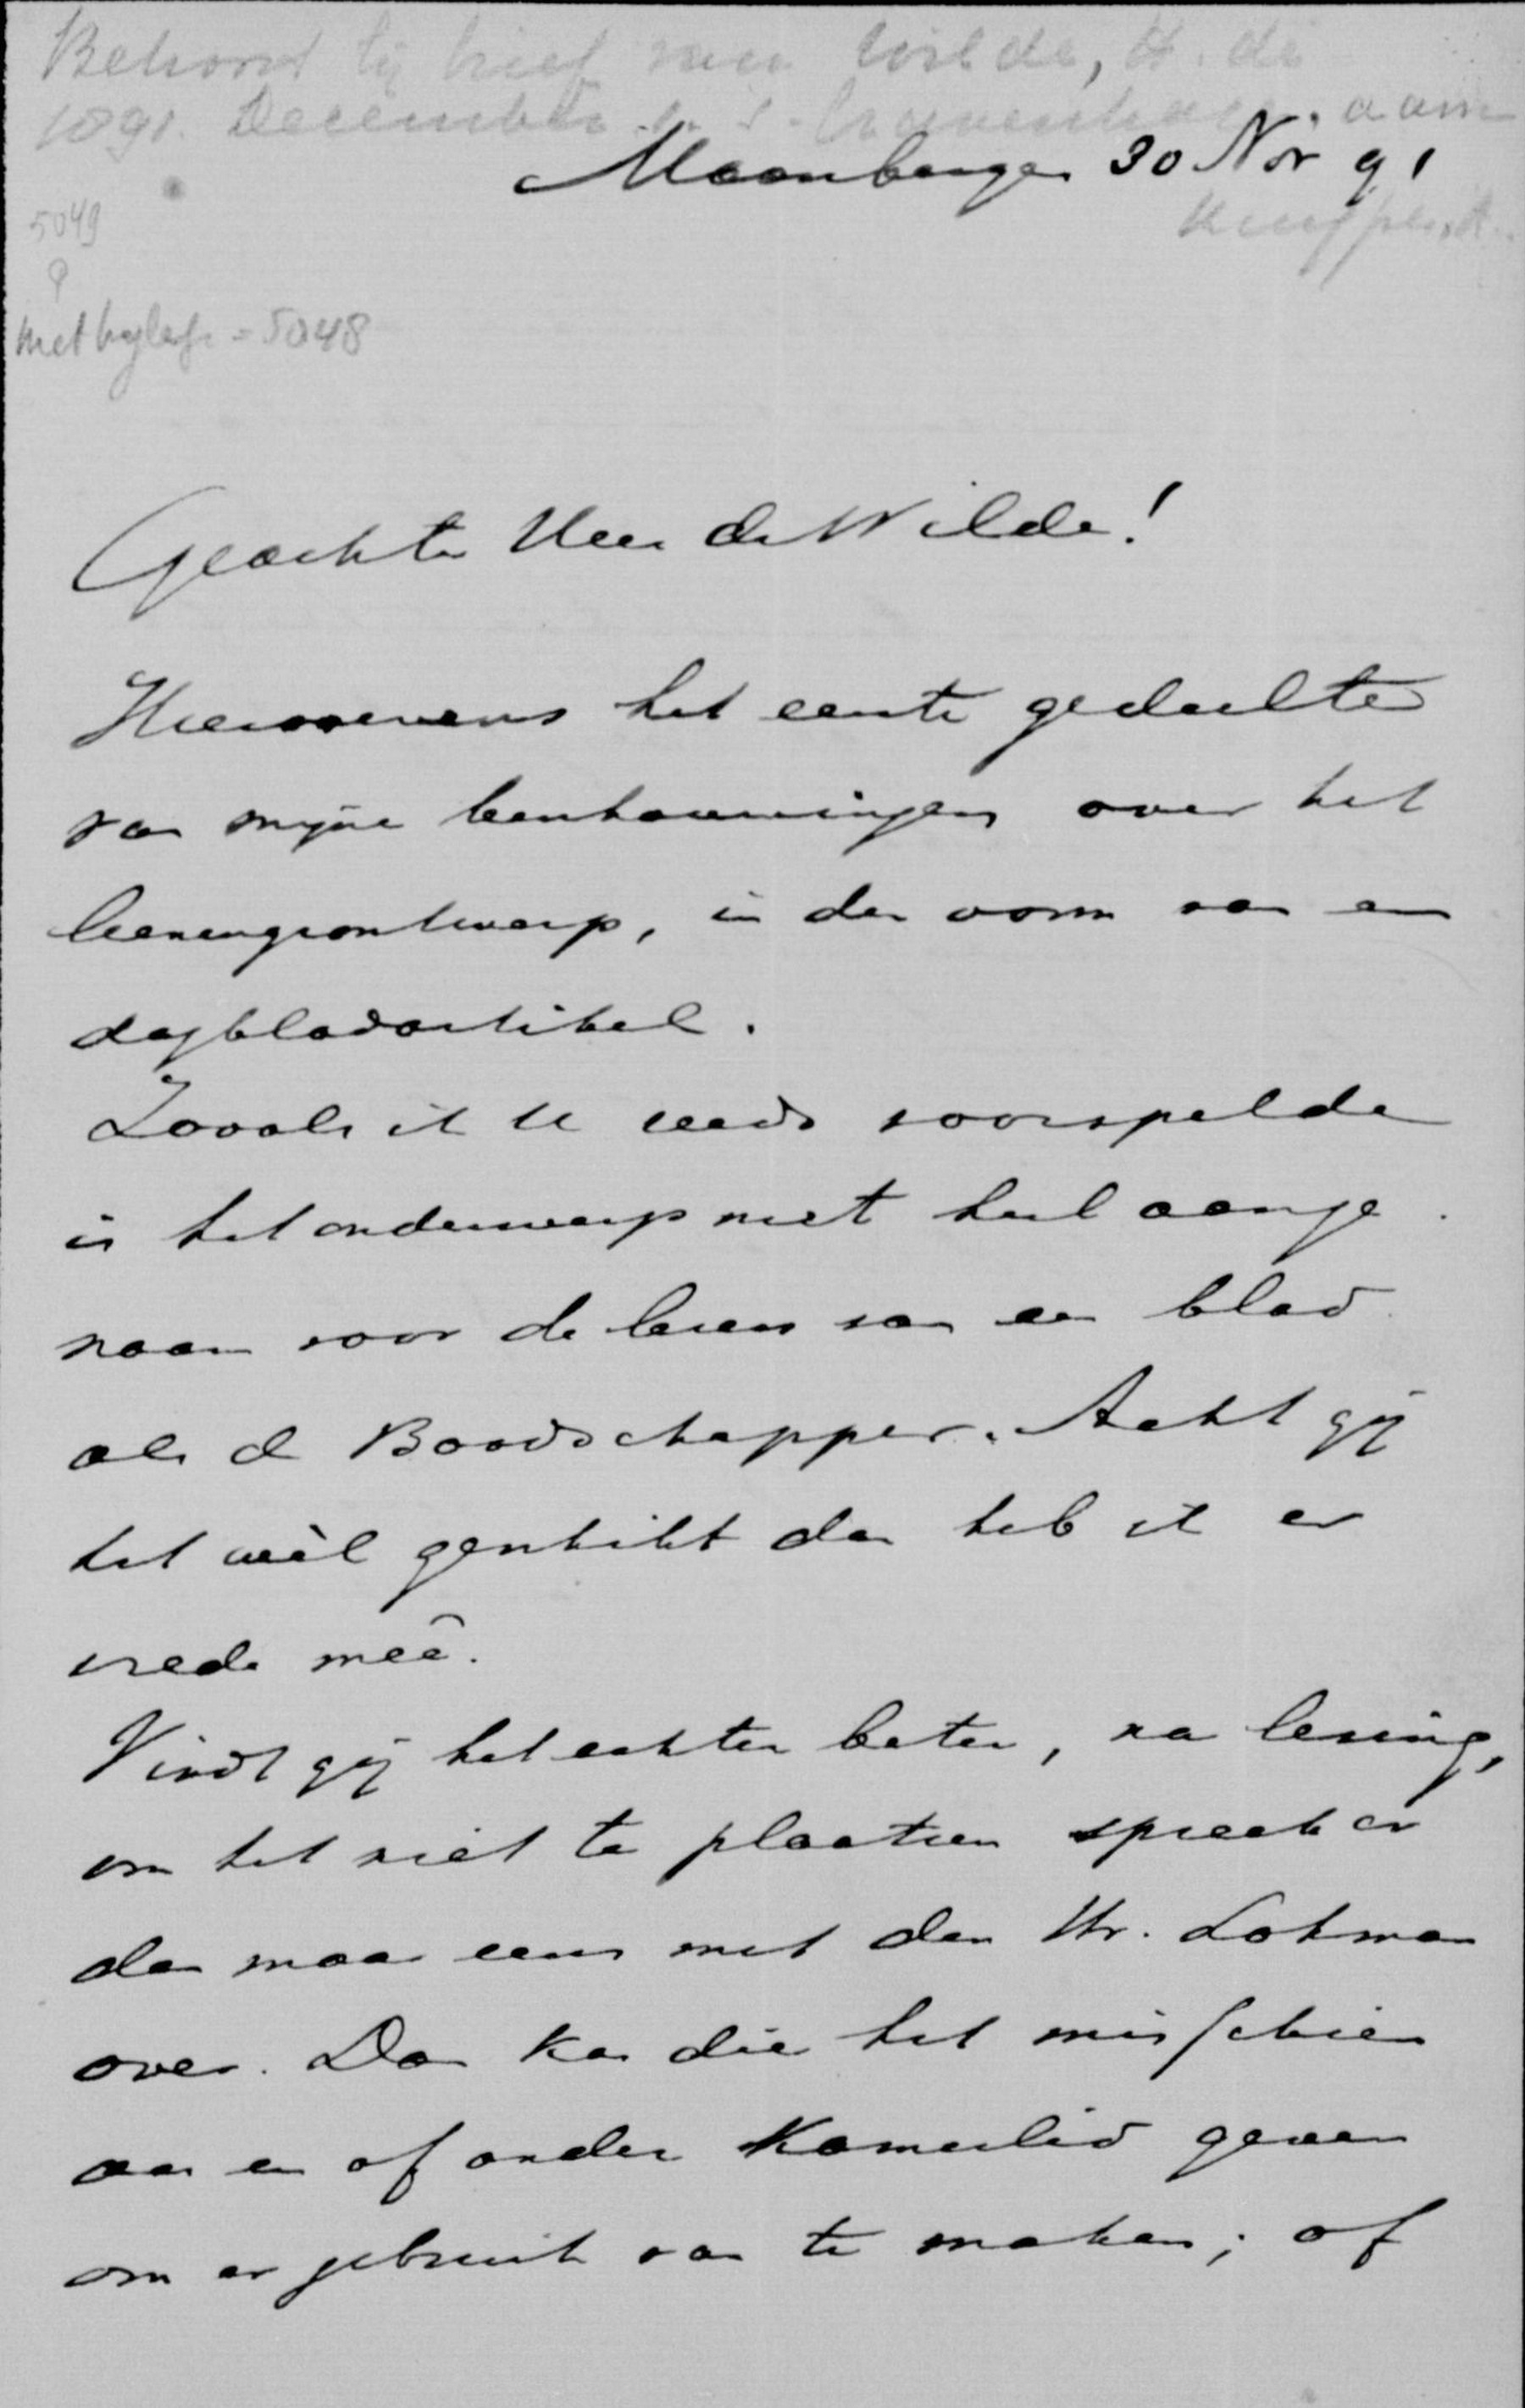 Behoort bij brief van Wilde, H. de
1891. December 's-Gravenhage. aan
Maarsbergen 30 Nov 91
5049
met bijlage = 5048
Geachte Heer de Wilde!
Hiernevens het eerste gedeelte
van mijne beschouwingen over het
leeningsontwerp, in den vorm van een
dagbladartikel.
Zooals ik U reeds voorspelde
is het onderwerp niet heel aange
naam voor de lezers van een blad
als de Boodschapper. Acht gij
het wèl geschikt dan heb ik er
vrede meê.
Vindt gij het echter beter, na lezing,
om het niet te plaatsen spreek er
dan maar eens met den Hr. Lohman
over. Dan kan die het misschien
aan een of ander Kamerlid geven
om er gebruik van te maken; of